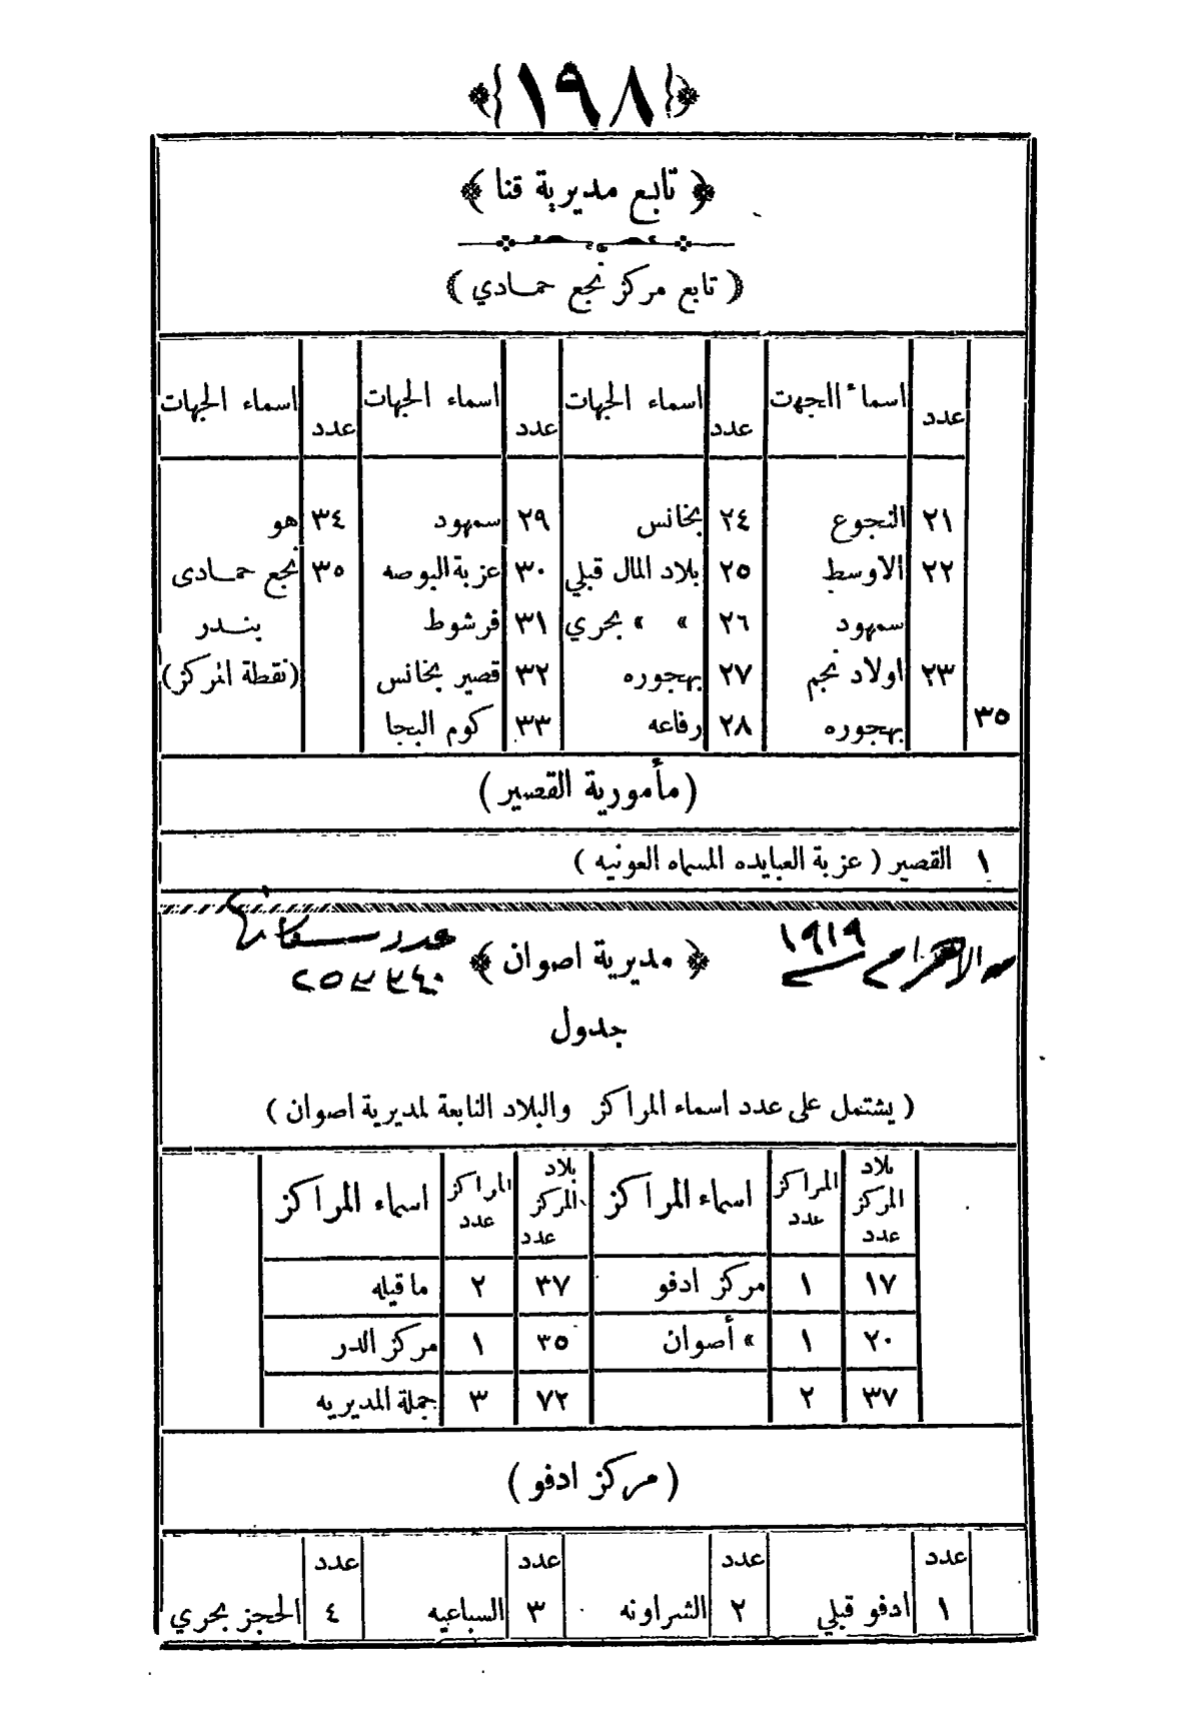 ﴿١٩٨﴾
﴿ تابع مديرية قنا ﴾
( تابع مركز نجع حمادي )
عدد اسماء الجهت عدد اسماء الجهات عدد اسماء الجهات عدد اسماء الجهات
٢١ النجوع ٢٤ بخانس ٢٩ سمهود ٣٤ هو
٢٢ الاوسط ٢٥ بلاد المال قبلي ٣٠ عزبة البوصه ٣٥ نجع حمادى
سمهود ٢٦ » » بحري ٣١ فرشوط بندر
٢٣ اولاد نجم ٢٧ بهجوره ٣٢ قصير بخانس (نقطة المركز)
٣٥ بهجوره ٢٨ رفاعه ٣٣ كوم البجا
( مأمورية القصير )
١ القصير ( عزبة العبايده المسماه العونيه )
الاهرام ١٩١٩ ﴿ مديرية اصوان ﴾ عدد سكانها
٢٥٣٣٤٠
جدول
( يشتمل على عدد اسماء المراكز والبلاد التابعة لمديرية اصوان )
بلاد المركز عدد المراكز عدد اسماء المراكز بلاد المركز عدد المراكز عدد اسماء المراكز
١٧ ١ مركز ادفو ٣٧ ٢ ما قبله
٢٠ ١ » أصوان ٣٥ ١ مركز الدر
٣٧ ٢ ٧٢ ٣ جملة المديريه
( مركز ادفو )
عدد عدد عدد عدد
١ ادفو قبلي ٢ الشراونه ٣ السباعيه ٤ الحجز بحري